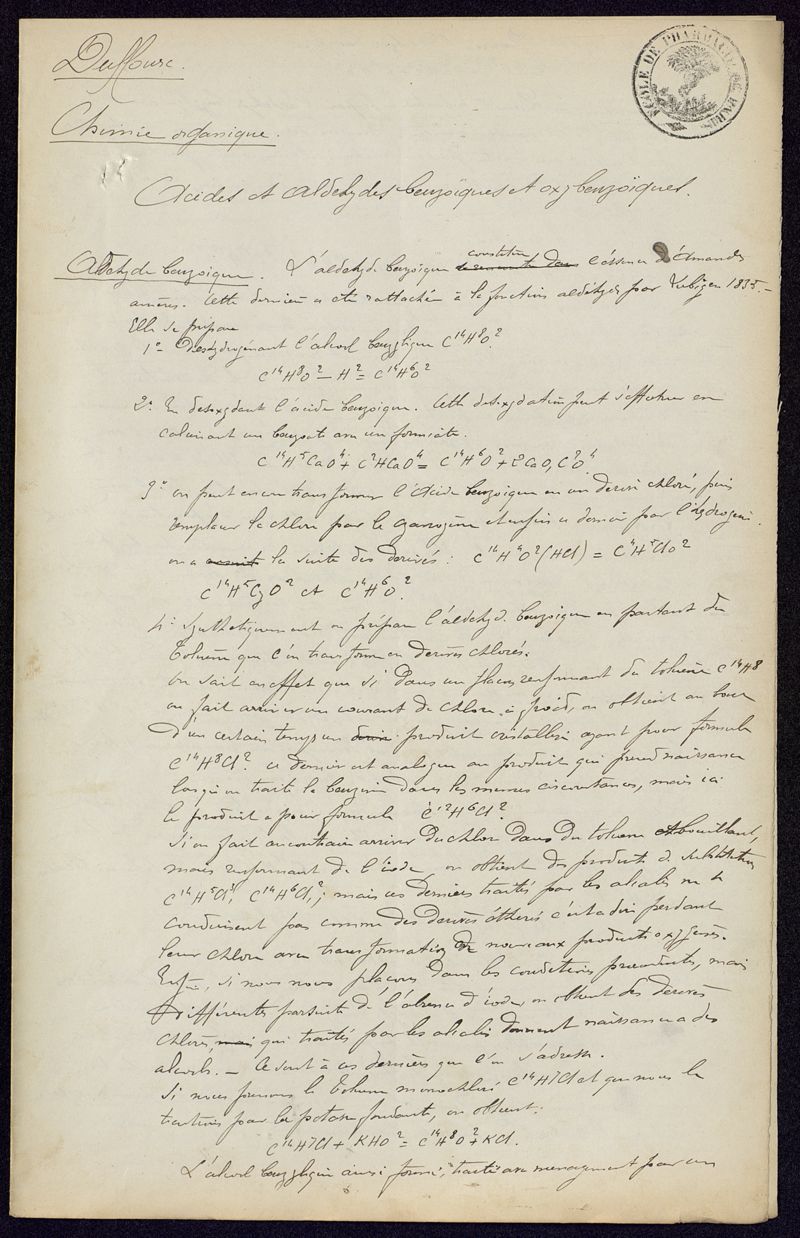 Duffourc.
ÉCOLE DE PHARMACIE DE PARIS
Chimie organique.
Acides et aldehydes benzoïques et oxybenzoïques.
Aldehyde benzoique. L'aldehyde benzoique constitue l'éssence d'Amandes
amères. Cette dernière a été rattachée à la fonction aldéhyde par Liebig en 1835.—
Elle se prépare
1° Deshydrogénant l'alcool benzylique C14H8O2
C14H8O2 — H2 = C14H6O2
2° En desoxydant l'acide benzoique. Cette desoxydation peut s'effectuer en
calcinant un benzoate avec un formiate.
C14H5CaO4 + C2HCaO4 = C14H6O2 + 2CaO, C2O4
3° on peut encore transformer l'acide benzoique en un dérivé chloré, puis
remplacer le chlore par le cyanogène et enfin ce dernier par l'hydrogène.
on a la suite des derivés: C14H4O2(HCl) = C14H5ClO2
C14H5CyO2 et C14H6O2.
4° Synthetiquement on prépare l'aldéhyde benzoique en partant du
Toluène que l'on transforme en derivés chlorés.
On sait en effet que si dans un flacon renfermant du toluène C14H8
on fait arriver un courant de chlore à froid, on obtient au bout
d'un certain temps un produit cristallisé ayant pour formule
C14H8Cl2. ce dernier est analogue au produit qui prend naissance
lorsqu'on traite la benzine dans les memes circonstances, mais ici
le produit a pour formule C12H6Cl2.
Si on fait au contraire arriver du chlore dans du toluene bouillant,
mais renfermant de l'iode, on obtient des produits de substitution
C14H7Cl, C14H6Cl2; mais ces derniers traités par les alcalis ne se
conduisent pas comme des derivés éthérés c'est a dire perdant
leur chlore avec transformation de nouveaux produits oxygénés.
Enfin, si nous nous plaçons dans les conditions precedentes, mais
differentes par suite de l'absence d'iode, on obtient des derivés
chlorés, qui traités par les alcalis donnent naissance a des
alcools. — Ce sont à ces derniers que l'on s'adresse.
Si nous prenons le Toluene monochloré C14H7Cl et que nous le
traitions par la potasse fondante, on obtient:
C14H7Cl + KHO2 = C14H8O2 + KCl.
L'alcool benzylique ainsi formé, traité avec menagement par un